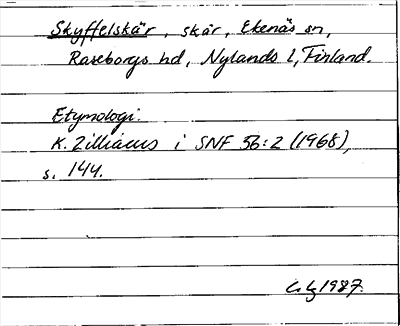 Skyffelskär, skär, Ekenäs sn,
Raseborgs hd, Nylands l, Finland.
Etymologi:
K. Zilliacus i SNF 56:2 (1968),
s. 144.
1987.